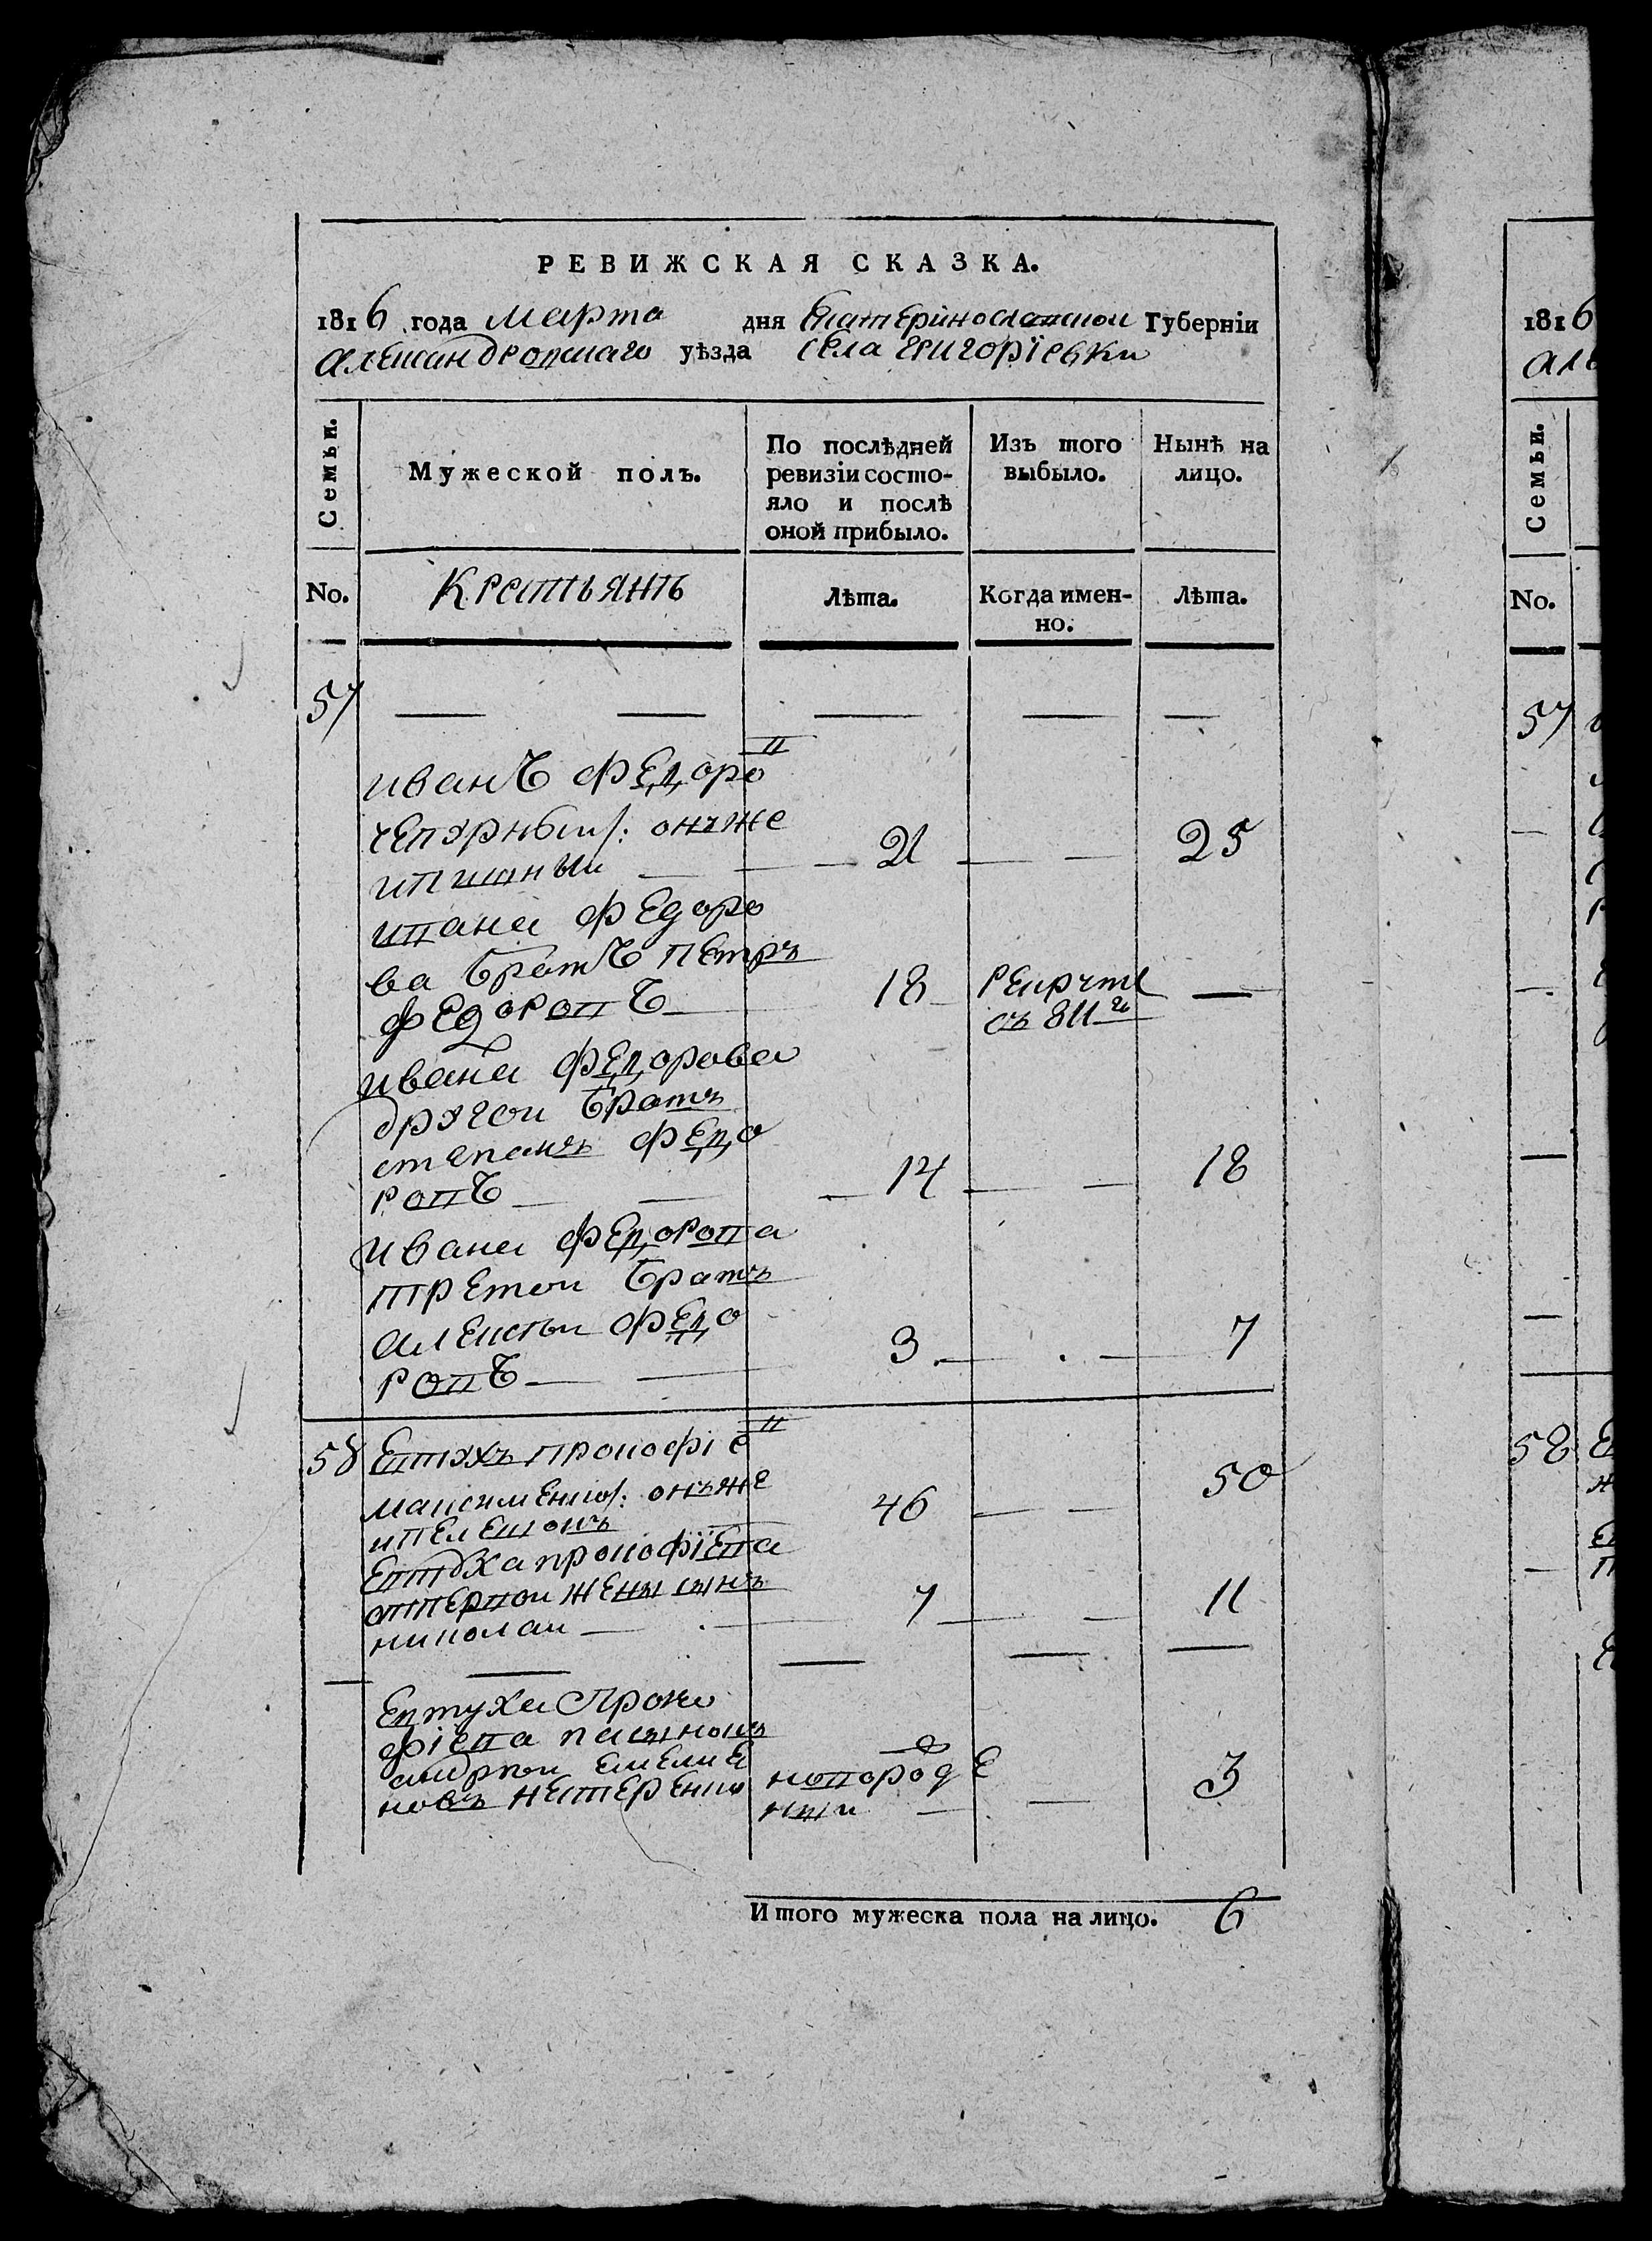 РЕВИЖСКАЯ СКАЗКА.
1816 года марта дня Екатеринославской Губерніи
Александровскаго уѣзда села Григорїевки
Семьи.
Мужеской полъ.
По послѣдней ревизіи состо-
яло и послѣ
оной прибыло.
Изъ того
выбыло.
Нынѣ на
лицо.
No.
Крестьянъ
Лѣта.
Когда имен-
но.
Лѣта.
57
иванъ федоров
чепурный/: онъже
21 25
ивана федоро
ва братъ петръ
федоровъ 18 рекрутѣ
съ 811го
ивана федорова
другои братъ
степанъ федо
ровъ 14 18
ивана федорова
третои братъ
алексѣи федо
ровъ 3 7
58 Евтухъ прокофїев
максименко/: онъже
46 50
Евтуха прокофїева
отпервои жены сынъ
николаи 7 11
Евтуха Проко
фїева пасынокъ
Емелиѧ
новъ нестеренко новороде
ныи 3
Итого мужеска пола на лицо. 6
1816
Але
Семьи.
No.
57
58